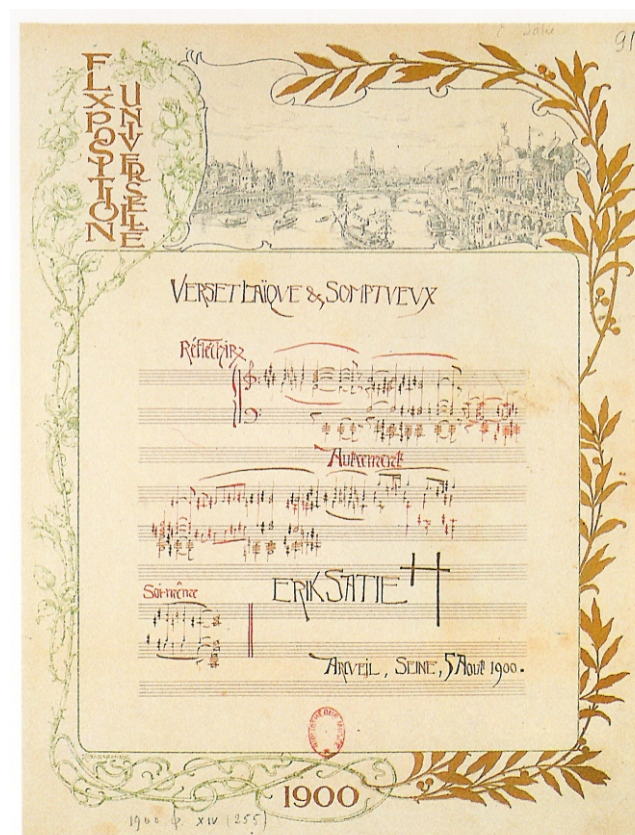 E. Satie
91
EXPOSITION
UNIVERSELLE
VERSET LAÏQVE & SOMPTVEVX
Réfléchir
Autrement
Soi-même
ERIK SATIE
ARCVEIL, SEINE, 5 Août 1900.
1900
1900 XIV (255)